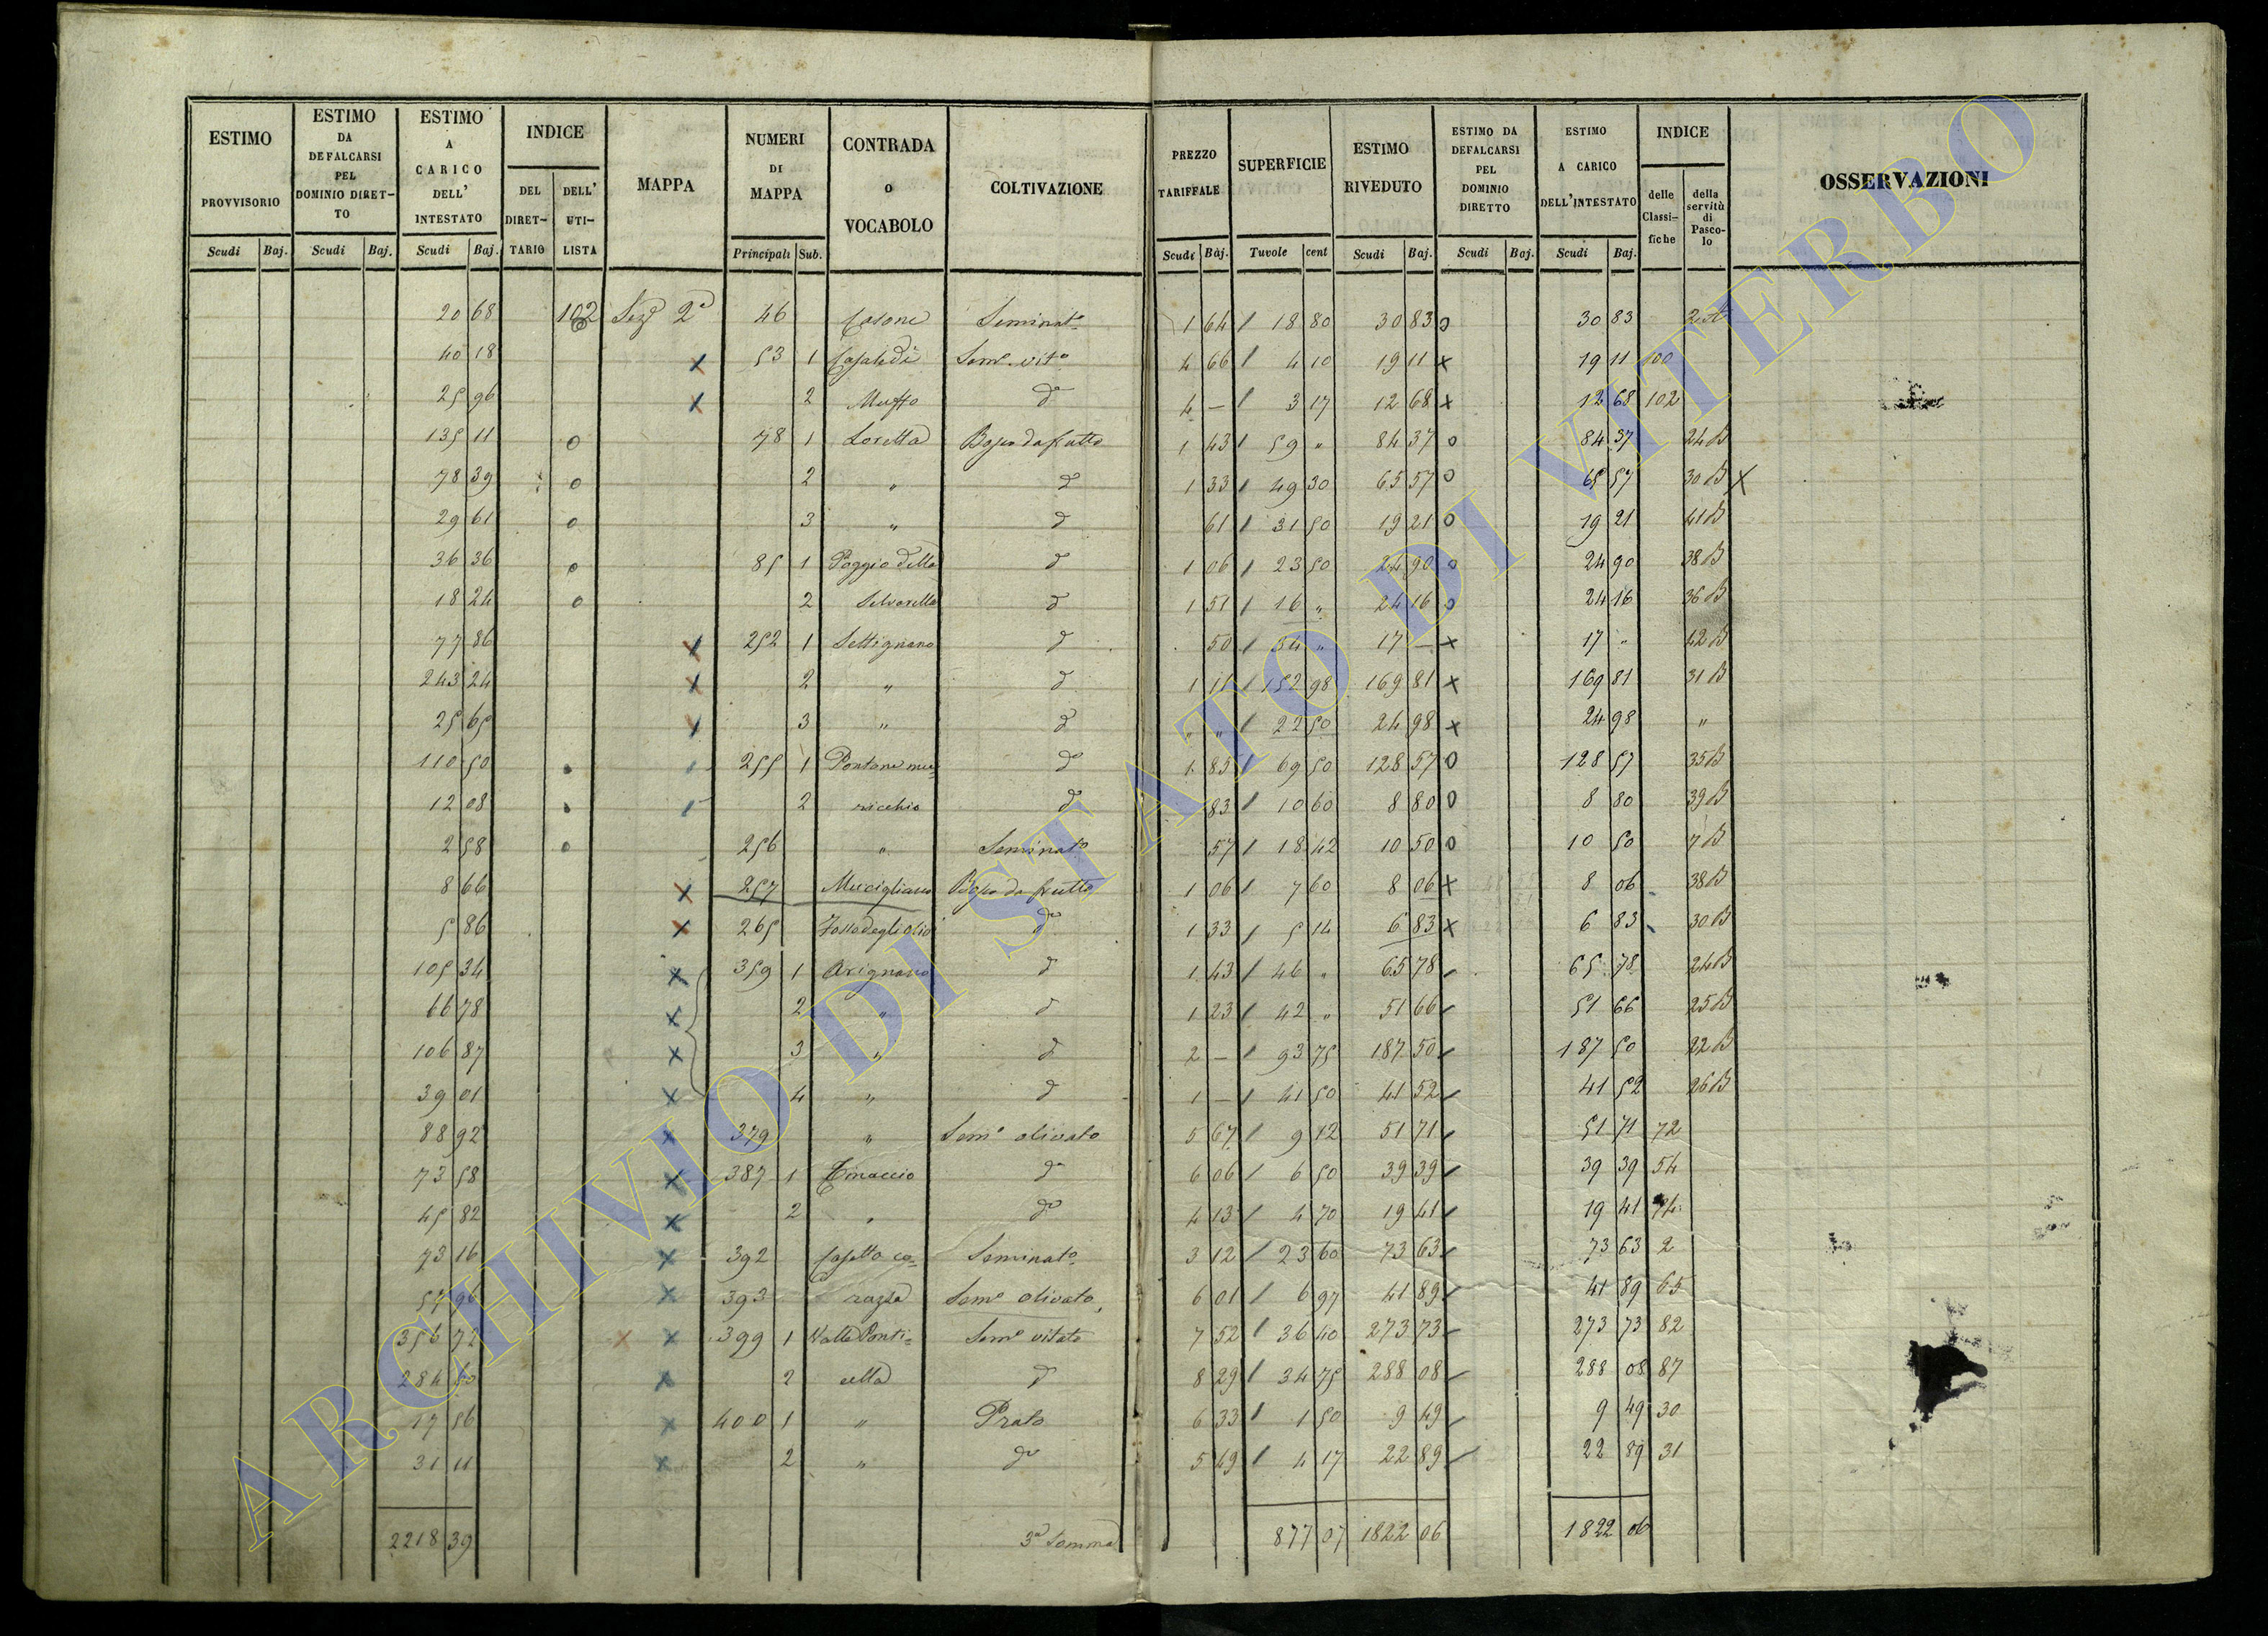 ESTIMO PROVVISORIO Scudi Baj.
ESTIMO DA DEFALCARSI PEL DOMINIO DIRET-TO Scudi Baj.
ESTIMO A CARICO DELL' INTESTATO Scudi Baj.
INDICE DEL DIRET-TARIO DELL' UTI-LISTA
MAPPA
NUMERI DI MAPPA Principali Sub.
CONTRADA o VOCABOLO
COLTIVAZIONE
PREZZO TARIFFALE Scudi Baj.
SUPERFICIE Tuvole cent
ESTIMO RIVEDUTO Scudi Baj.
ESTIMO DA DEFALCARSI PEL DOMINIO DIRETTO Scudi Baj.
ESTIMO A CARICO DELL'INTESTATO Scudi Baj.
INDICE delle Classi-fiche della servitù di Pasco-lo
OSSERVAZIONI
20 68 102 Sezе 2a 46 Casone Seminato 1 64 / 18 80 30 83 o 30 83 2 A
40 18 x 53 1 Casaledi Semo vito 4 66 / 4 10 19 11 x 19 11 100
25 96 x 2 Muffo do 4 — / 3 17 12 68 x 12 68 102
135 11 o 78 1 Loretta Bosco da frutto 1 43 / 59 " 84 37 o 84 37 24 B
78 39 o 2 " do 1 33 / 49 30 65 57 o 65 57 30 B x
29 61 o 3 " do 61 / 31 50 19 21 o 19 21 41 B
36 36 o 85 1 Poggio della do 1 06 / 23 50 24 90 o 24 90 38 B
18 24 o 2 Selvarella do 1 51 / 16 " 24 16 o 24 16 36 B
77 86 x 252 1 Settignano do 50 / 34 " 17 — x 17 " 42 B
243 24 x 2 " do 1 11 / 152 98 169 81 x 169 81 31 B
25 65 x 3 " do " " / 22 50 24 98 x 24 98 "
110 50 255 1 Pontone mu= do 1 85 / 69 50 128 57 o 128 57 35 B
12 08 2 ricchio do 83 / 10 60 8 80 o 8 80 39 B
2 58 o 256 " Seminato 57 / 18 42 10 50 o 10 50 7 B
8 66 x 257 Mucigliano Bosco da frutto 1 06 / 7 60 8 06 x 8 06 38 B
5 86 x 265 Fosso degli Olio do 1 33 / 5 14 6 83 x 6 83 30 B
105 34 x 359 1 Arignano do 1 43 / 46 " 65 78 / 65 78 24 B
66 78 x 2 " do 1 23 / 42 " 51 66 / 51 66 25 B
106 87 x 3 " do 2 — / 93 75 187 50 / 187 50 22 B
39 01 x 4 " do 1 — / 41 50 41 52 / 41 52 26 B
88 92 x 379 " Semo olivato 5 67 / 9 12 51 71 / 51 71 72
73 58 x 387 1 do 6 06 / 6 50 39 39 / 39 39 54
45 82 x 2 " do 4 13 / 4 70 19 41 / 19 41 74
73 16 x 392 Casetta co= Seminato 3 12 / 23 60 73 63 / 73 63 2
57 96 x 393 razza Semo olivato 6 01 / 6 97 41 89 / 41 89 65
356 72 x x 399 1 Valle Ponti= Semo vitato 7 52 / 36 40 273 73 / 273 73 82
284 60 x 2 cella do 8 29 / 34 75 288 08 / 288 08 87
17 56 x 400 1 " Prato 6 33 / 1 50 9 49 / 9 49 30
31 11 x 2 " do 5 49 / 4 17 22 89 / 22 89 31
2218 39 3a Somma 877 07 1822 06 1822 06
ARCHIVIO DI STATO DI VITERBO